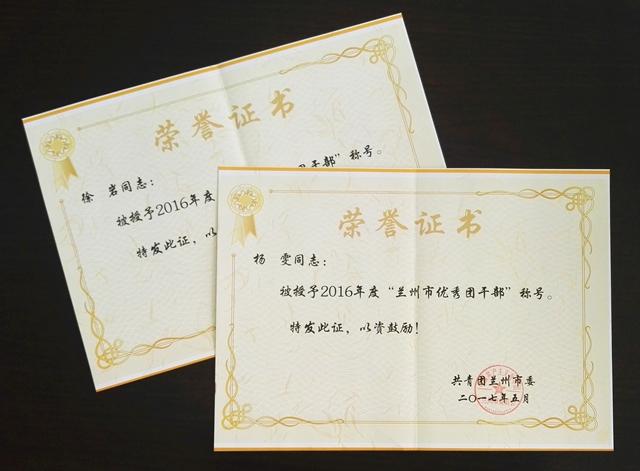 荣誉证书
徐 岩同志：
被授予2016年度
团干部”称号。
特发此证，以
荣誉证书
杨 雯同志：
被授予2016年度“兰州市优秀团干部”称号。
特发此证，以资鼓励！
共青团兰州市委
二〇一七年五月